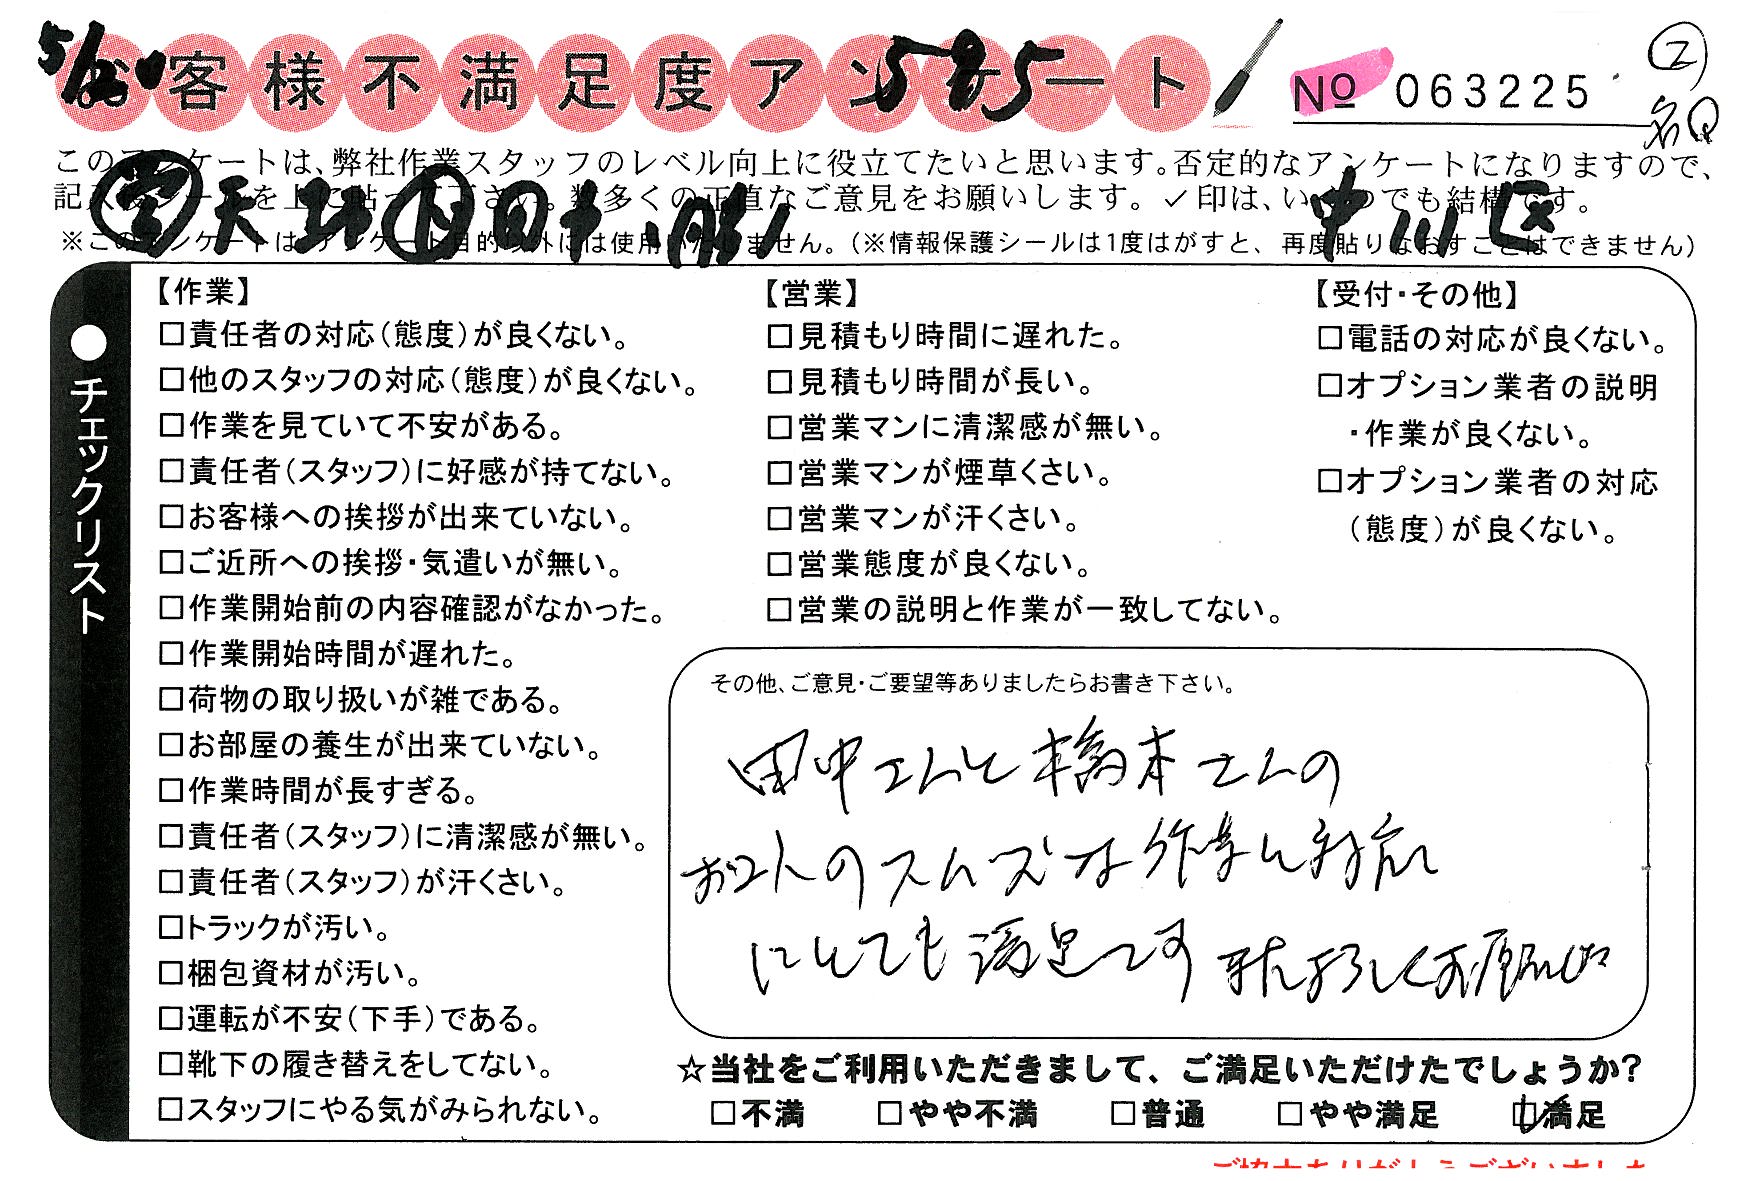 5/20
お客様不満足度アンケート
585
No 063225
②
名Q
このアンケートは、弊社作業スタッフのレベル向上に役立てたいと思います。否定的なアンケートになりますので、
記入後シールを上に貼って下さい。数多くの正直なご意見をお願いします。✓印は、いくつでも結構です。
中川区
※このアンケートは、アンケート目的以外には使用いたしません。(※情報保護シールは1度はがすと、再度貼りなおすことはできません)
●チェックリスト
【作業】
□責任者の対応(態度)が良くない。
□他のスタッフの対応(態度)が良くない。
□作業を見ていて不安がある。
□責任者(スタッフ)に好感が持てない。
□お客様への挨拶が出来ていない。
□ご近所への挨拶・気遣いが無い。
□作業開始前の内容確認がなかった。
□作業開始時間が遅れた。
□荷物の取り扱いが雑である。
□お部屋の養生が出来ていない。
□作業時間が長すぎる。
□責任者(スタッフ)に清潔感が無い。
□責任者(スタッフ)が汗くさい。
□トラックが汚い。
□梱包資材が汚い。
□運転が不安(下手)である。
□靴下の履き替えをしてない。
□スタッフにやる気がみられない。
【営業】
□見積もり時間に遅れた。
□見積もり時間が長い。
□営業マンに清潔感が無い。
□営業マンが煙草くさい。
□営業マンが汗くさい。
□営業態度が良くない。
□営業の説明と作業が一致してない。
【受付・その他】
□電話の対応が良くない。
□オプション業者の説明
・作業が良くない。
□オプション業者の対応
(態度)が良くない。
その他、ご意見・ご要望等ありましたらお書き下さい。
田中さんと橋本さんの
お2人のスムーズな作業と対応
にとても満足です またよろしくお願いします
☆当社をご利用いただきまして、ご満足いただけたでしょうか?
□不満 □やや不満 □普通 □やや満足 ☑満足
ご協力ありがとうございました